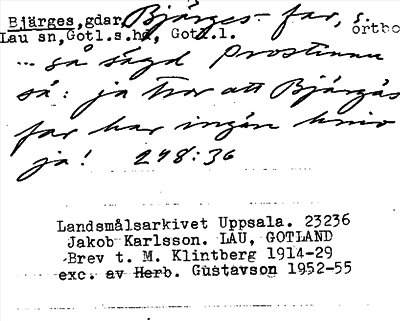 Bjärges, gdar, Bjärges-far, s.
Lau sn, Gotl.s.hd, Gotl.l. ortbo
... så sägd prostinnu
så: ja tror att Bjärgäs
far har ingän kniv
ja! 248:36
Landsmålsarkivet Uppsala. 23236
Jakob Karlsson. LAU, GOTLAND
Brev t. M. Klintberg 1914-29
exc. av Herb. Gustavson 1952-55